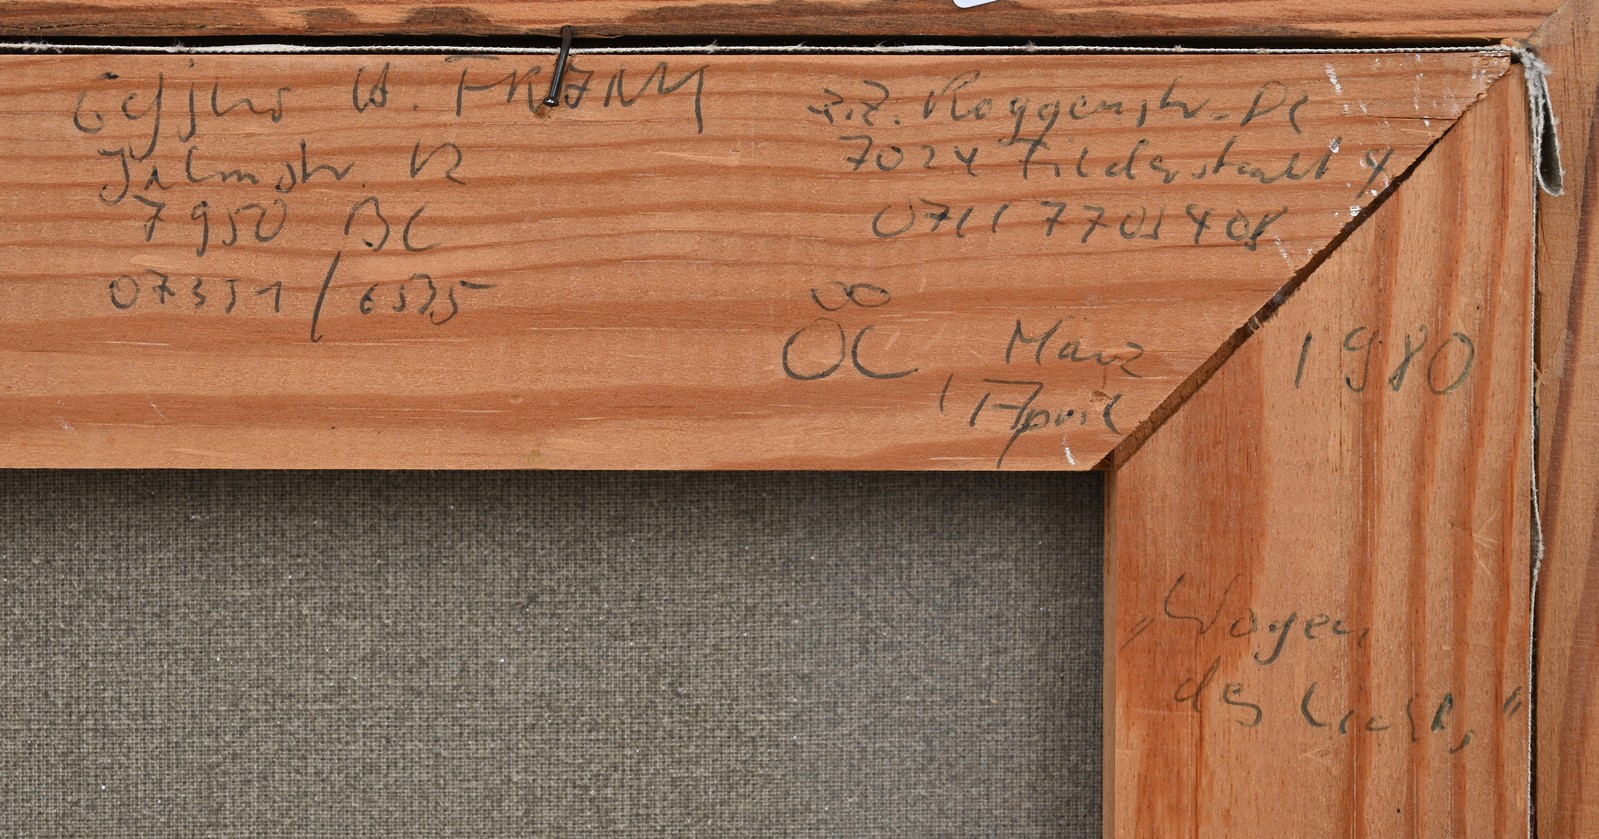 H. FRANK
7950 BC
07351 / 6535
z.Z. Roggenstr.
7024 Filderstadt 4
0711 7701408
∞
ÖL, März
April
1980
„Wogen
des Lichts“